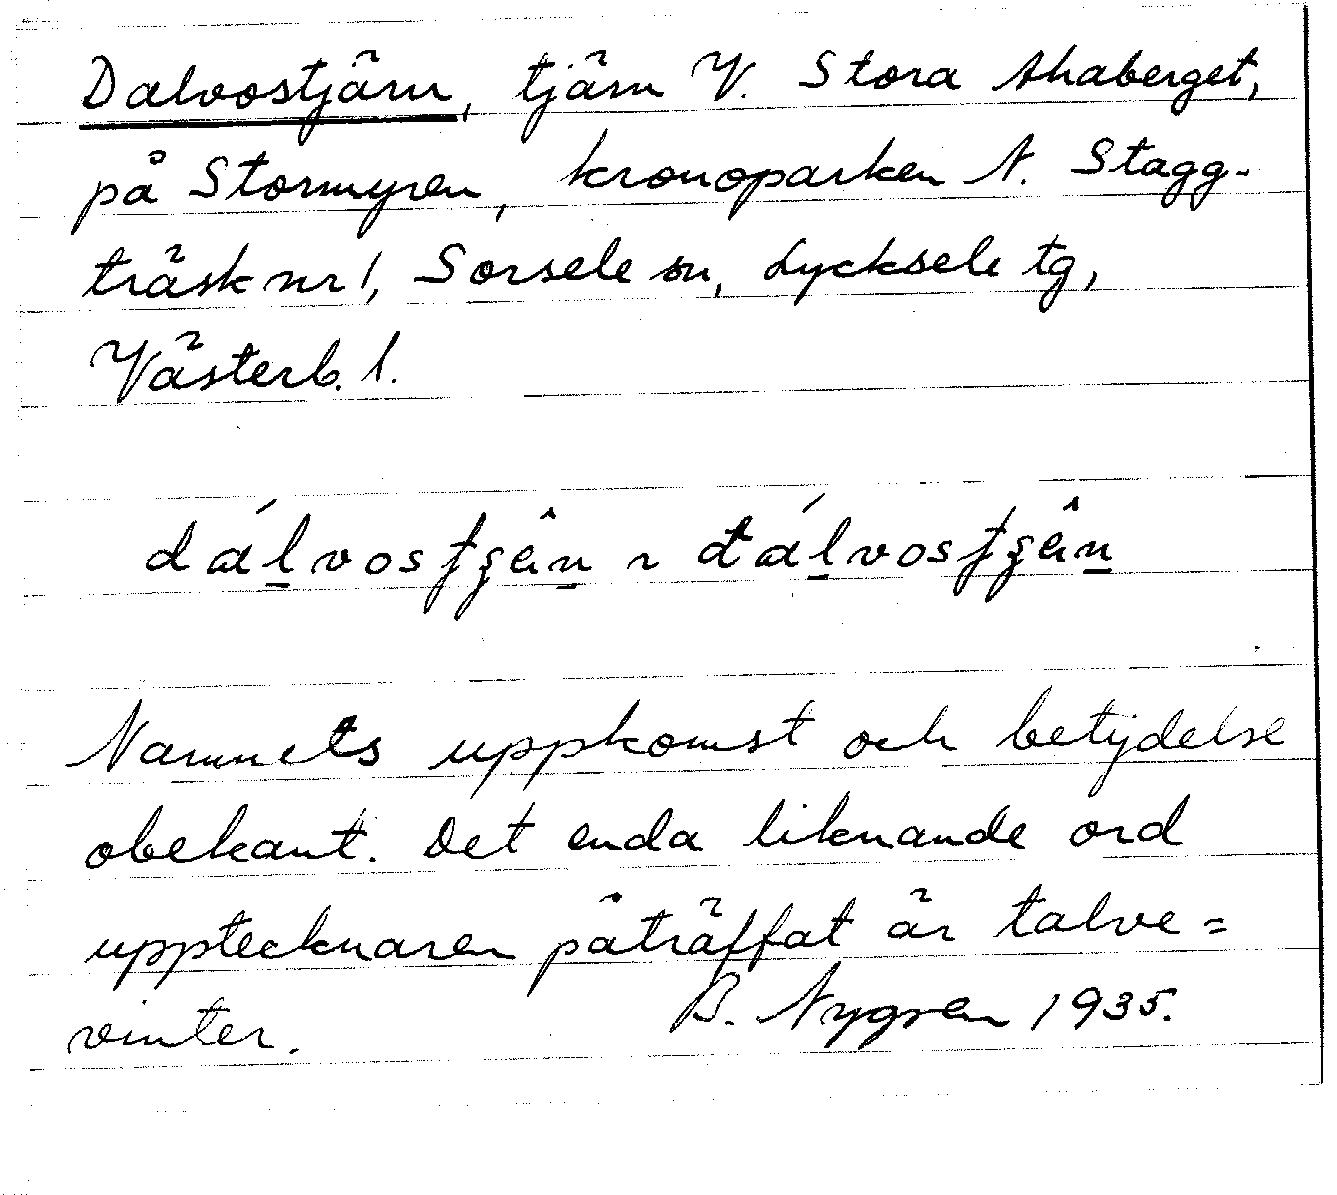 Dalvostjärn, tjärn V. Stora Ahaberget,
på Stormyren, kronoparken N. Stagg-
träsk nr 1, Sorsele sn, Lycksele tg,
Västerb. l.
Namnets uppkomst och betydelse
obekant. Det enda liknande ord
upptecknaren påträffat är talve =
vinter. B. Nygren 1935.